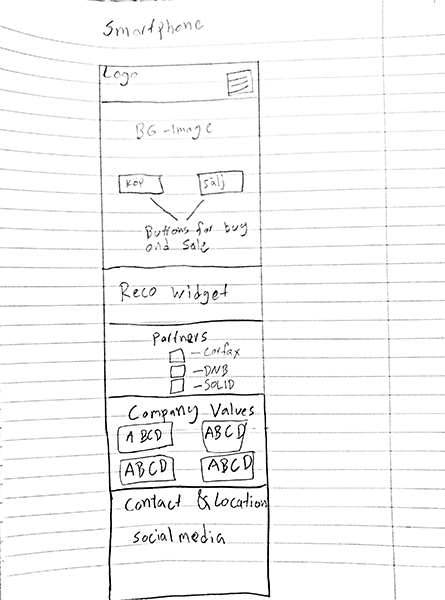 Smartphone
Logo
BG-Image
KÖP
Sälj
Buttons for buy
and Sale
Reco widget
Partners
-Carfax
-DNB
-SOLID
Company Values
ABCD
ABCD
ABCD
ABCD
Contact & Location
social media